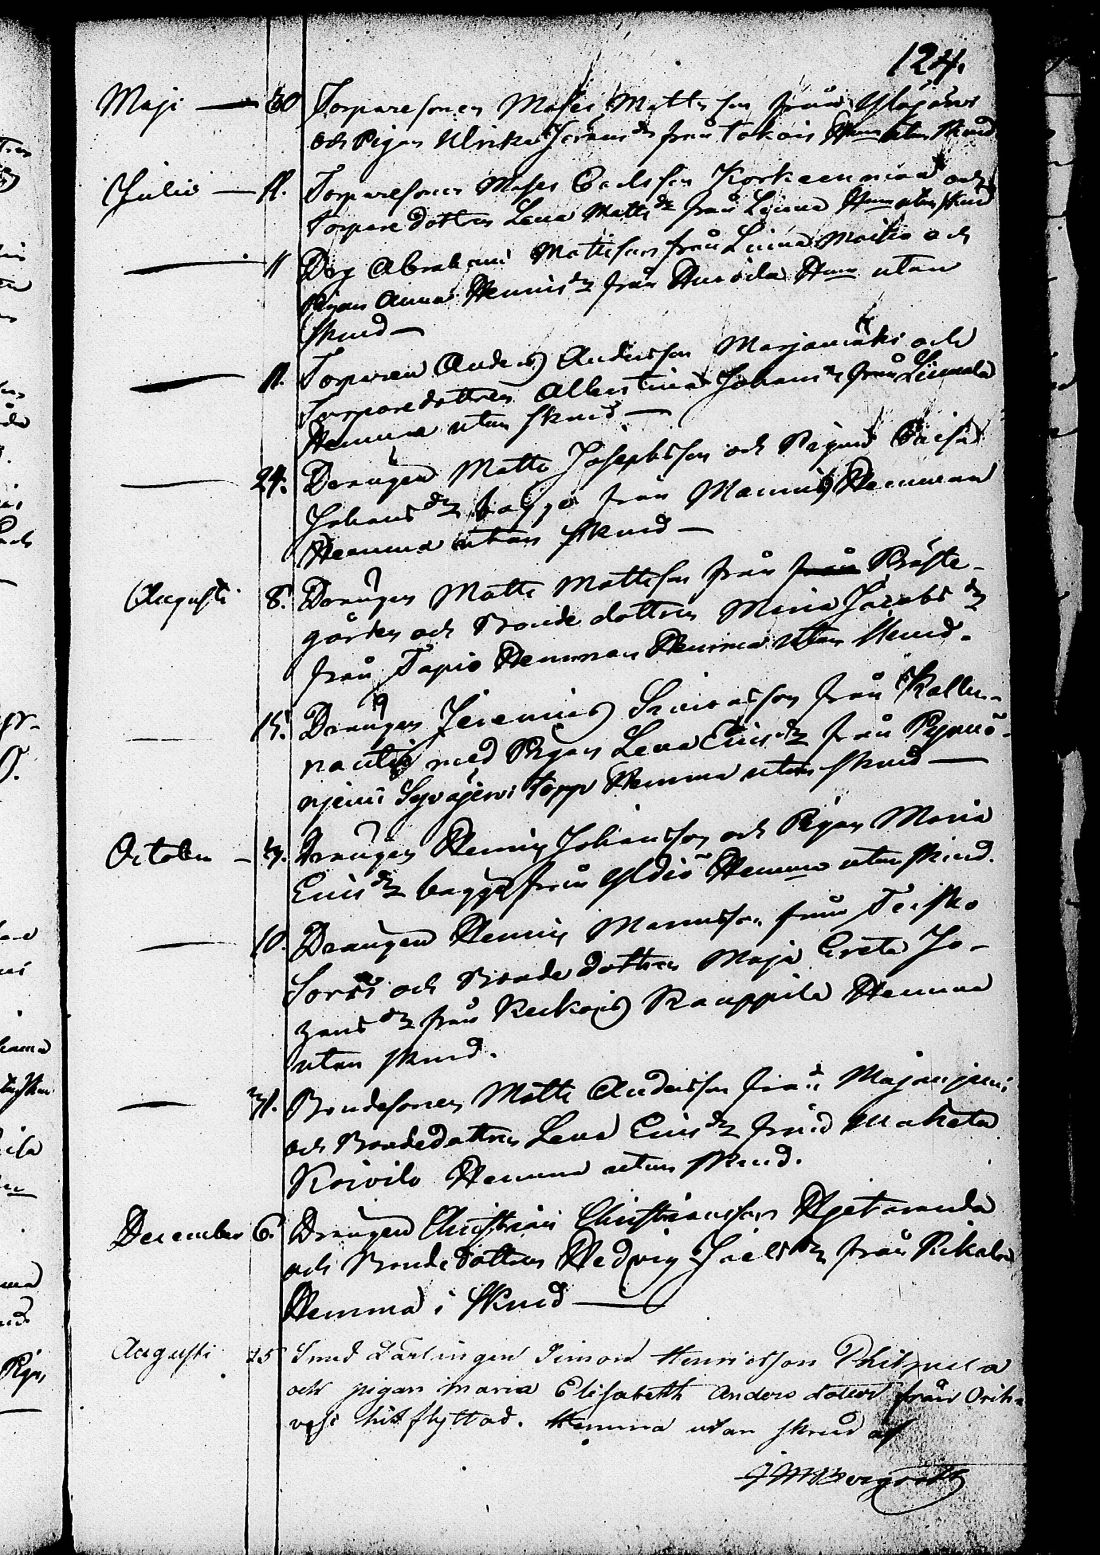 124.
Maji — 30 Torparesonen Moses Matts son från Ylöjärvi
och Pigan Ulrika Jeremis dr från Takois Hemma utan Skrud
Julii — 11. Torparesonen Moses Carlsson Korkeenniemi och
Torpare dottren Lena Matts dr från Linna Hemma utan skrud
— 11 Drg Abraham Mattsson från Linna Moisio och
Pigan Anna Henrics dr från Hemma utan
skrud —
— 11. Torparen Anders Andersson Marjamäki och
Torparedottren Albertina Johans dr från Linnala
Hemma utan skrud —
— 24. Drängen Matts Josephsson och Pigan Caisa
Johans dr bägge från Mannis Hemman
Hemma utan skrud —
Augusti 8. Drängen Matts Mattsson från från Präste-
gården och Bonde dottren Maria Jacobs dr
från Tapio Hemman Hemma utan Skrud.
— 15. Drängen Jeremias från Kallu-
nauti med Pigan Lena Erics dr från Pynnö-
njemi Syväjerwi torpp Hemma utan skrud —
October — 3. Drängen Henric Johansson och Pigan Maria
Erics dr bägge från Yldiö Hemma utan skrud.
— 10. Drängen Henric Mannsson från Teisko
Soros och Bonde dottren Maja Greta Jo-
hans dr från Keckois Kauppila Hemma
utan skrud.
— 31. Bondesonen Matts Andersson från Majanjemi
och Bondedottren Lena Erics dr från Maketa
Koivilo Hemma utan skrud.
December 6. Drängen Christian Christiansson Hjetaranda
och Bonde dottren Hedvig Joels dr från Rikala
Hemma i skrud —
Augusti 15 Smed Lärlingen Simon Henricsson Philpula
och pigan maria Elisabeth Anders dotter från Orih-
vesi hitflyttad. Hemma utan skrud af
J M Bergroth